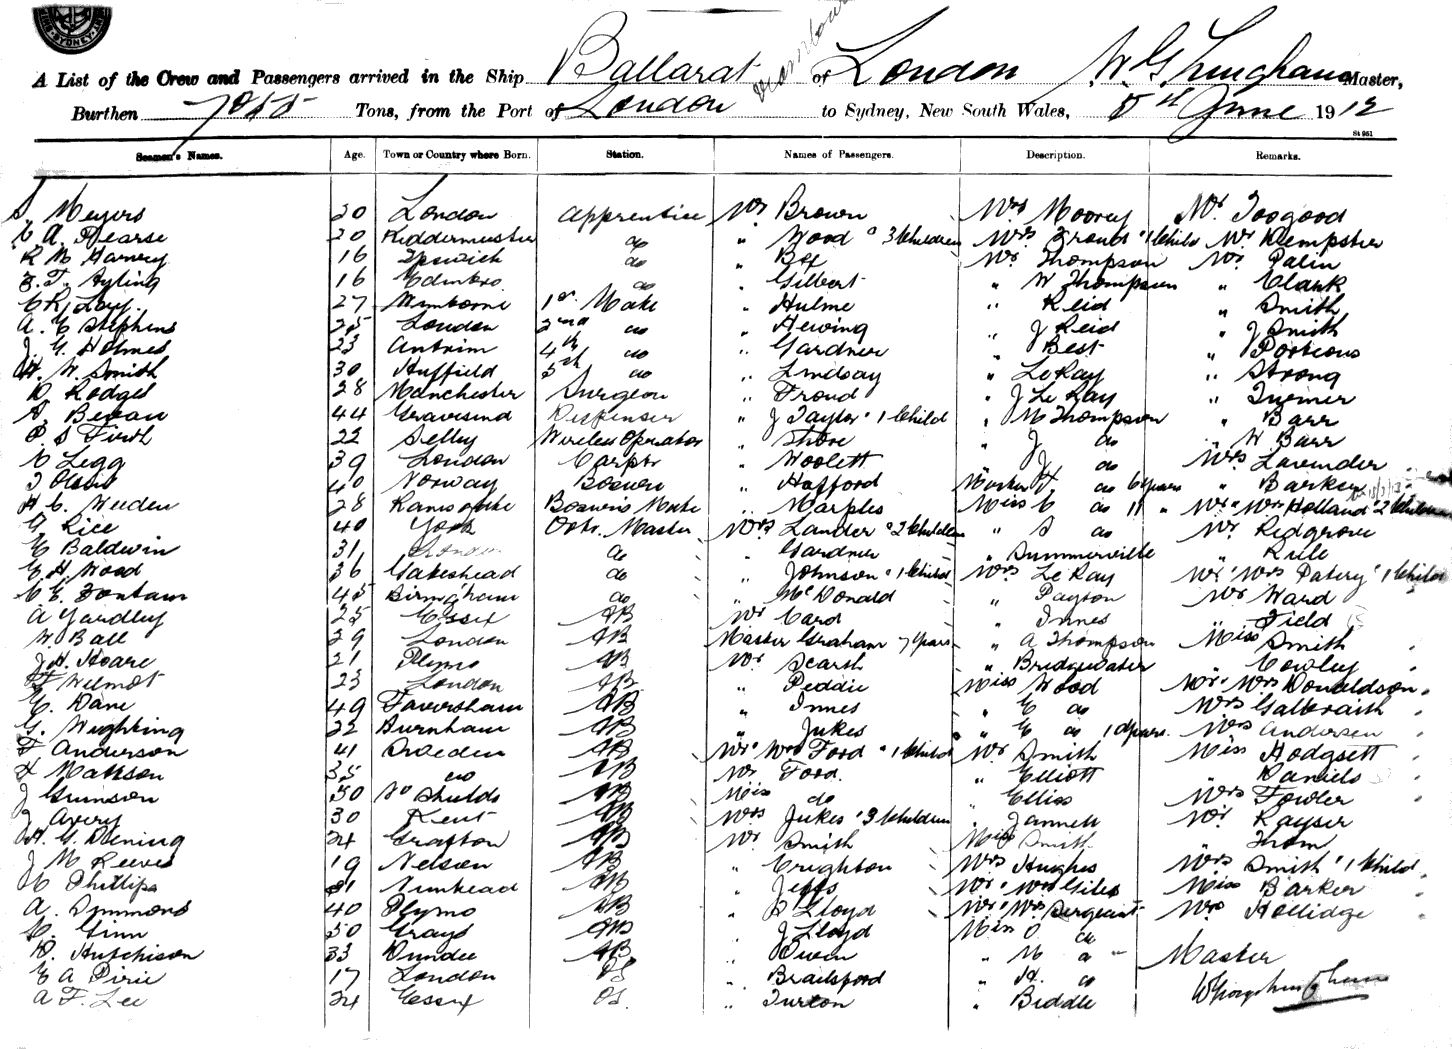 SYDNEY
A List of the Crew and Passengers arrived in the Ship Ballarat of London W. G. Master,
Burthen Tons, from the Port of London to Sydney, New South Wales, 8th June 1912
St 951
Seamen's Names. Age. Town or Country where Born. Station. Names of Passengers. Description. Remarks.
S. Meyers 20 London Apprentice Mr Brown Mrs Moorey Mr Toogood
A. Pearse 20 Kiddermuster do " Wood " 3 Children Mrs Froud " 1 Child Mr Klempster
R M Garvey 16 Ipswich do " Box Mr Thompson Mr Palin
F. T. Ayling 16 Edinbro do " Gilbert " W Thompson " Clark
27 Wimborne 1st Mate " Hulme " Reid " Smith
A. E Stephens 25 London 2nd do " Hewing " J Reid " J Smith
J G Holmes 23 Antrim 4th do " Gardner " Best " Portious
W. Smith 30 5th do " Lindsay " LeRay " Strong
D Rodges 28 Manchester Surgeon " Froud " J Le Ray " Turner
Bevan 44 Gravesend Dispenser " J Taylor " 1 Child " M Thompson " Barr
S Firth 22 Selby Wireless Operator " Shore " J do " W Barr
Legg 39 London Carptr " Woolett " J do Mrs Lavender
40 Norway Bosun " Hafford Master H do 6 years " Barker
H C. Weeden 28 Ramsgate Bosuns Mate " Marples Miss E do 11 " Mr " Mrs Holland " 2 Children
G Rice 40 York Qtr. Master Mrs Lander " 2 Children " S do Mr Redgrove
E Baldwin 31 London do " Gardner " Summerville " Rule
E H Wood 36 Gateshead do " Johnson " 1 Child Mrs Le Ray Mr " Mrs Patery " 1 Child
E. Fontain 45 Birmgham do " McDonald " Payton Mr Ward
A Yardley 25 Essex AB Mr Card " Innes " Field
W. Ball 29 London AB Master Graham 7 years " A Thompson Miss Smith
J H. Hoare 21 Plymo AB Mr Searsh " Bridgewater " Cowley
Wilmot 23 London AB " Peddie Miss Wood Mr " Mrs Donaldson
E. Dane 49 Faversham AB " Innes " E do Mrs Galbraith
G. Weghting 22 Burnham AB " Jukes " E do Mrs Andersen
F Anderson 41 AB Mr " Mrs Ford " 1 Child Mr Smith Miss Hodgsett
Mattson 35 do AB Mr Ford. " Elliott " Daniels
J Grimson 50 So Shields AB Miss do " Elliss Mrs Fowler
J Avery 30 Kent AB Mrs Jukes " 3 Children " Jannett Mr Kayser
G. Dening 24 Grafton AB Mr Smith Miss Smith "
J M Reeves 19 Nelson AB " Crighton Mrs Hughes Mrs Smith " 1 Child
Phillips 31 Nunhead AB " Jeffs Mr " Mrs Giles Miss Barker
A. Symmons 40 Plymo AB " S Lloyd Mr " Mrs Sergeant Mrs Hollidge
Ginn 50 Grays AB " J Lloyd Miss O do
D. Hutchison 33 Dundee AB " Owen " M do Master
E A Pirie 17 London OS " Brailsford " H. do
A F. Lee 24 Essex OS " Turton " Biddle